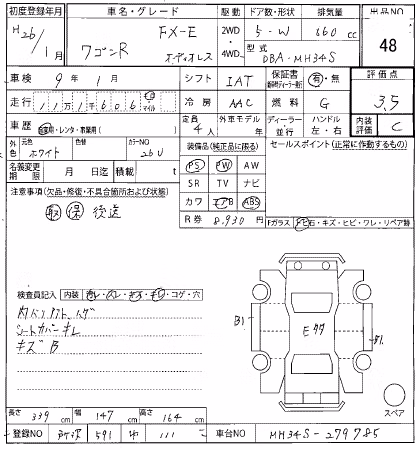 初度登録年月 車名・グレード 駆動 ドア数・形状 排気量 出品NO
H26/1月 ワゴンR FX-E オーディオレス 2WD・4WD 5-W 660cc 48
型式 DBA-MH34S
車検 9年1月 シフト IAT 保証書 有・無 評価点
走行 111千606 マイル 冷房 AAC 燃料 G 3.5
車歴 自家用・レンタ・事業用( ) 定員 4人 外車モデル 年 ディーラー・並行 ハンドル 左・右 内装評価 C
外色 元色 ホワイト 色替 カラーNO 26U 装備品(純正品に限る) セールスポイント(正常に作動するもの)
名義変更期限 月 日迄 積載 t PS PW AW
注意事項(欠品・修復・不具合箇所および状態) SR TV ナビ
取 保 後送 カワ エアB ABS
R券 8.930円 Fガラス トビ石・キズ・ヒビ・ワレ・リペア跡
検査員記入 内装 汚レ・スレ・キズ・キレ・コゲ・穴
シートカバーキレ
キズB
B1 E77 B1
スペア
長さ 339cm 幅 147cm 高さ 164cm
登録NO 591 わ 111 車台NO MH34S-279785